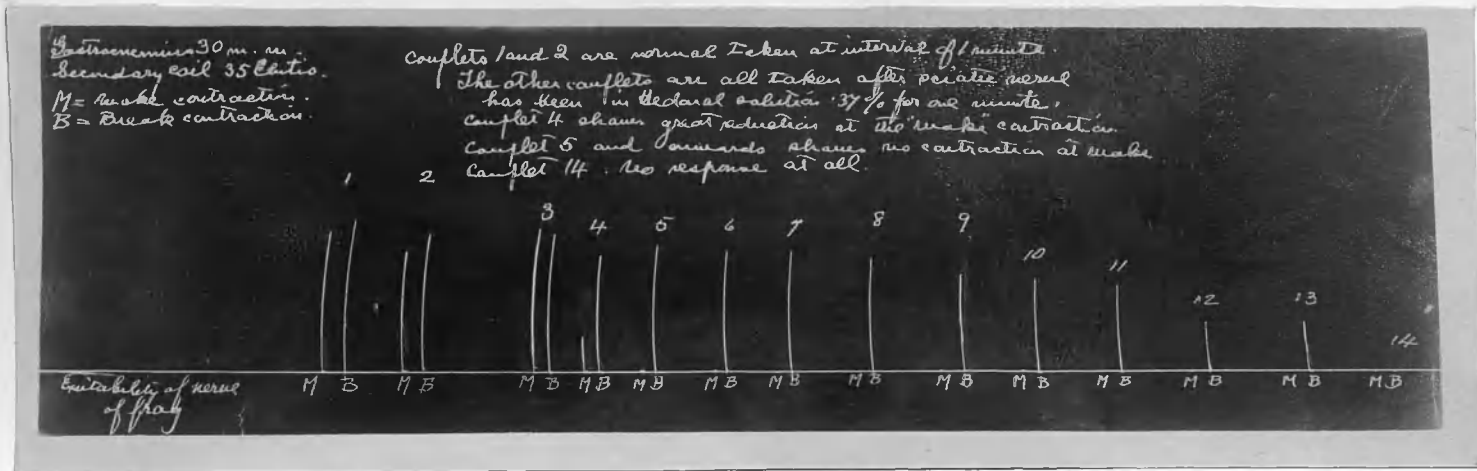 Gastrocnemius 30 m.m.
Secondary coil 35 
M = make contraction.
B = Break contraction.
Couplets 1 and 2 are normal Taken at interval of 1 minute.
The other couplets are all taken after sciatic nerve
has been in Hedonal solution .37% for one minute.
Couplet 4 shows great reduction at the "make" contraction
Couplet 5 and onwards shows no contraction at make
Couplet 14. No response at all.
1 2 3 4 5 6 7 8 9 10 11 12 13 14
M B M B M B M B M B M B M B M B M B M B M B M B M B M B
Excitability of nerve
of frog